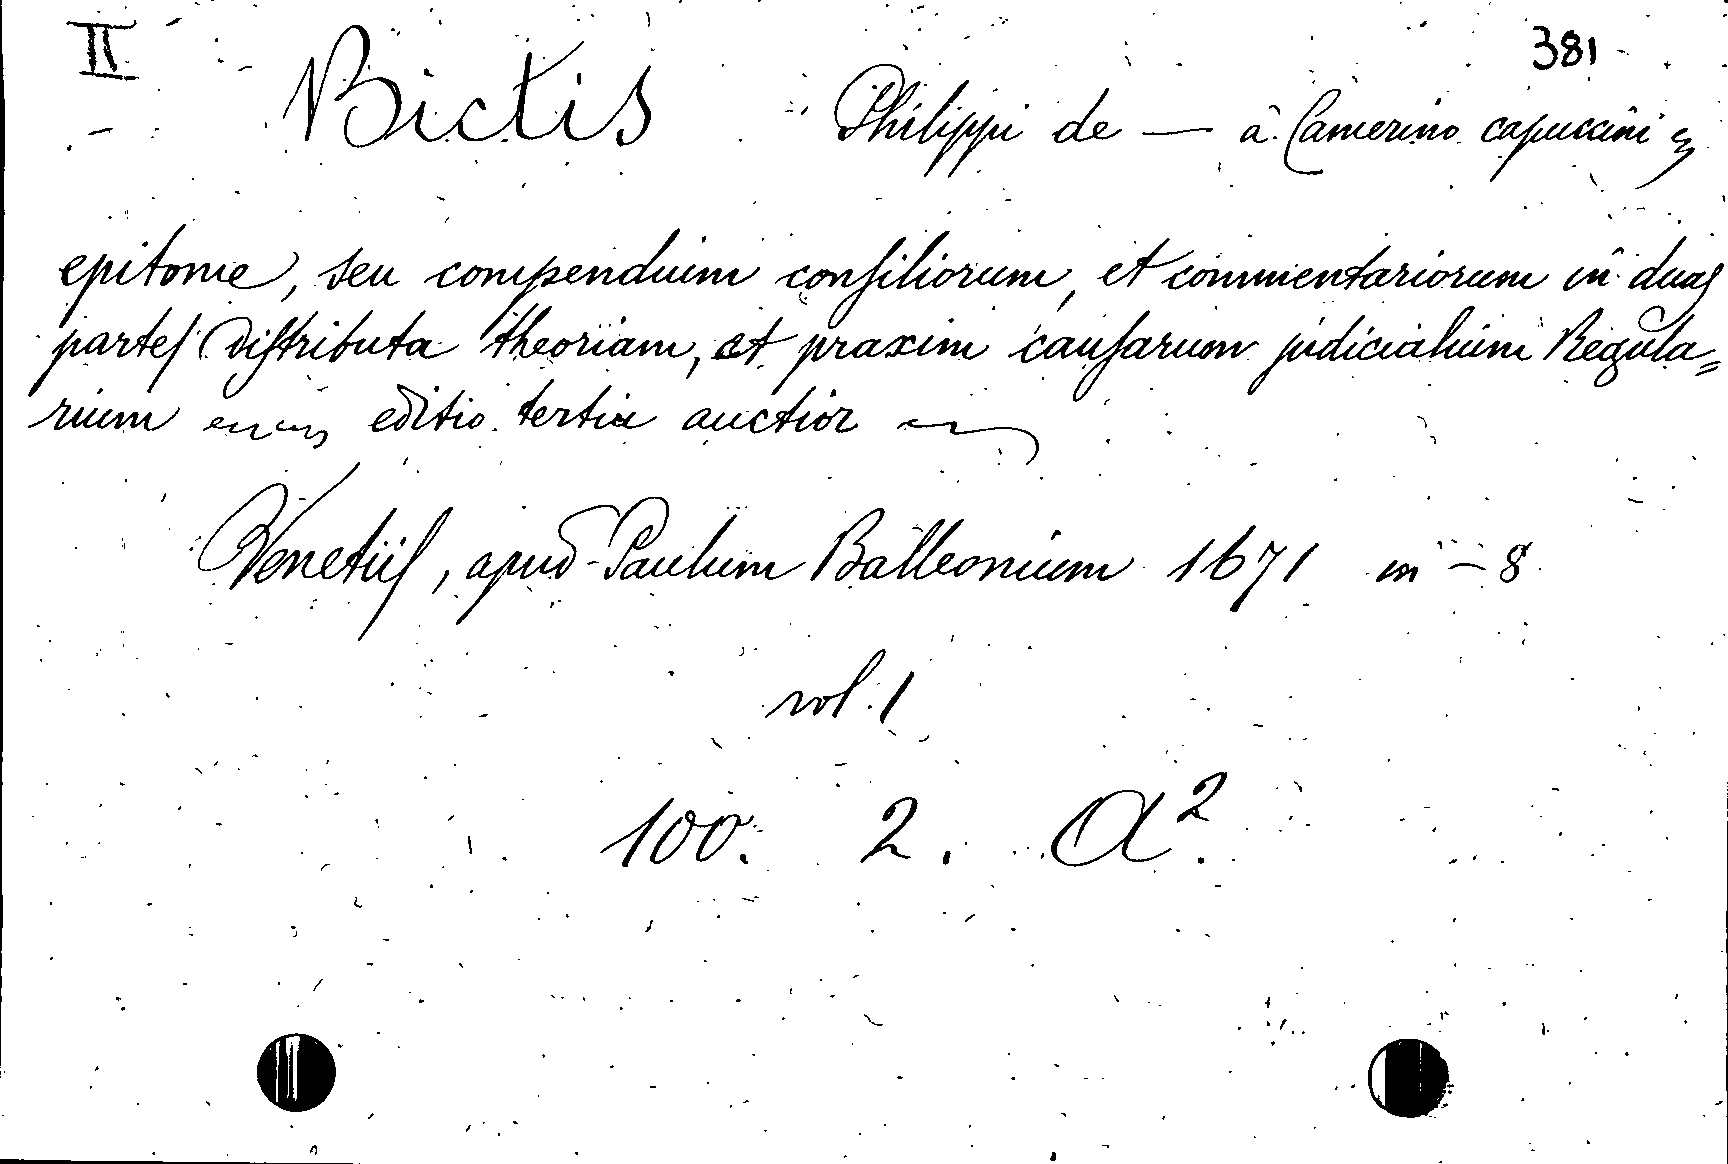 II
381
Bictis Philippi de — à Camerino capuccini
epitome, seu compendium consiliorum, et commentariorum in duas
partes distributa theoriam, et praxim causarum judicialium Regula=
rium editio tertia auctior
Venetiis, apud Paulum Balleonium 1671 in-8
vol. 1
100. 2. A².